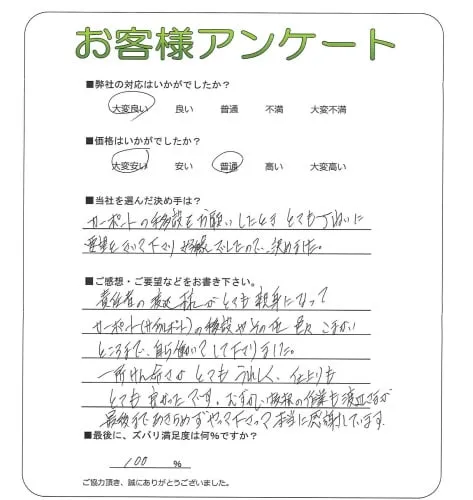 お客様アンケート
■弊社の対応はいかがでしたか？
大変良い 良い 普通 不満 大変不満
■価格はいかがでしたか？
大変安い 安い 普通 高い 大変高い
■当社を選んだ決め手は？
カーポートの移設をお願いしたとき とても丁ねいに
要望をきいて下さり でしたので、決めました。
■ご感想・ご要望などをお書き下さい。
責任者の がとても親身になって
カーポート(サイクルポート)の移設やその他 色々 こまかい
ところまで、自ら働いてして下さりました。
一所けん命さが とても うれしく、仕上りも
とても 良かったです。 の作業も
最後まであきらめずやって下さって本当に感謝しています
■最後に、ズバリ満足度は何%ですか？
100 %
ご協力頂き、誠にありがとうございました。